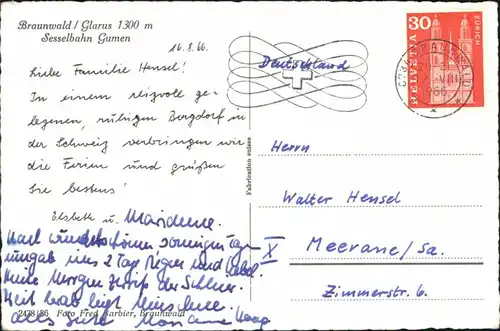 Braunwald / Glarus 1300 m
Sesselbahn Gumen
16.8.66.
Liebe Familie Hensel!
In einem reizvoll ge-
legenen, ruhigen Bergdorf in
der Schweiz verbringen wir
die Ferien und grüßen
Sie bestens!
Elsbeth u. Marianne.
Nach wunderschönen sonnigen Tagen
uns 2 Tage Regen und
Morgen der Schnee.
alles Gute Marianne
2438/86 Foto Fred Barbier, Braunwald
Fabrication suisse
Deutschland
30
HELVETIA
ZÜRICH
BRAUNWALD
1966
Herrn
Walter Hensel
X Meerane/Sa.
Zimmerstr. 6.